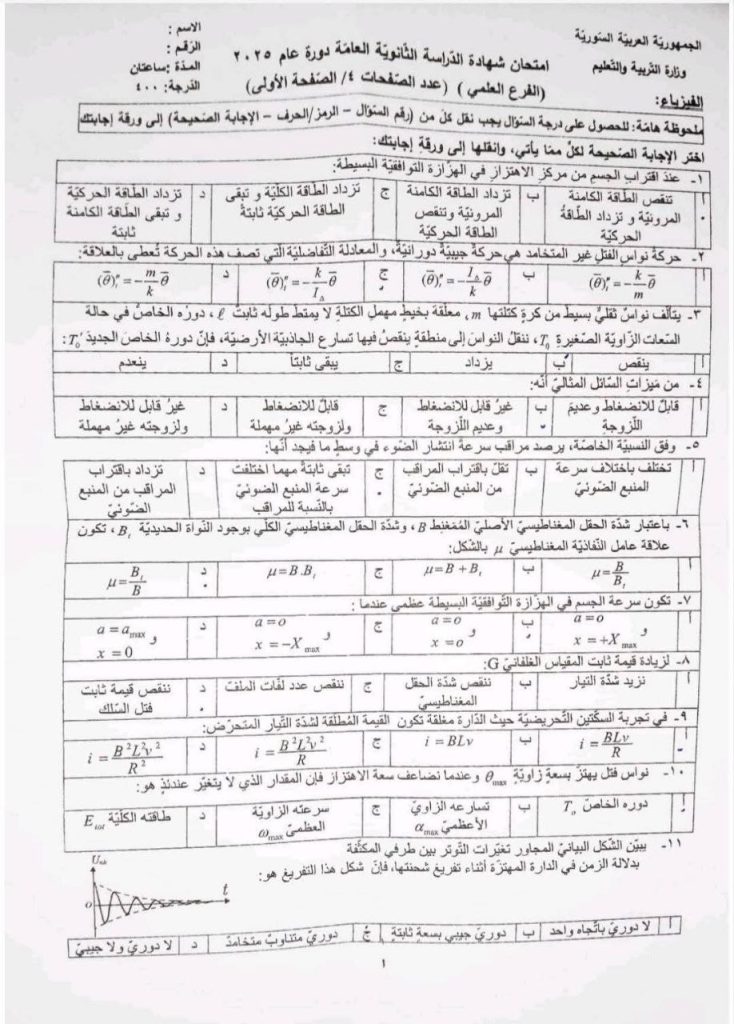 الجمهورية العربية السورية
وزارة التربية والتعليم
الفيزياء:
امتحان شهادة الدراسة الثانوية العامة دورة عام ٢٠٢٥
(الفرع العلمي) (عدد الصفحات ٤/ الصفحة الأولى)
الاسم :
الرقم :
المدة : ساعتان
الدرجة: ٤٠٠
ملحوظة هامة: للحصول على درجة السؤال يجب نقل كل من (رقم السؤال – الرمز/الحرف – الإجابة الصحيحة) إلى ورقة إجابتك
اختر الإجابة الصحيحة لكلّ ممّا يأتي، وانقلها إلى ورقة إجابتك:
١- عند اقتراب الجسم من مركز الاهتزاز في الهزازة التوافقيّة البسيطة:
أ تنقص الطاقة الكامنة المرونيّة و تزداد الطاقةُ الحركيّة ب تزداد الطاقة الكامنة المرونيّة وتنقص الطاقة الحركيّة ج تزداد الطاقة الكليّة و تبقى الطاقة الحركيّة ثابتةً د تزداد الطاقة الحركيّة و تبقى الطاقة الكامنة ثابتة
٢- حركة نواس الفتل غير المتخامد هي حركةٌ جيبيةٌ دورانيّةٌ، والمعادلة التفاضليّة التي تصف هذه الحركة تُعطى بالعلاقة:
أ (θ̄)″ₜ = −k/m θ̄ ب (θ̄)″ₜ = −I_Δ/k θ̄ ج (θ̄)″ₜ = −k/I_Δ θ̄ د (θ̄)″ₜ = −m/k θ̄
٣- يتألّف نواسٌ ثقليٌّ بسيط من كرةٍ كتلتها m، معلّقة بخيطٍ مهمل الكتلة لا يمتطّ طوله ثابتٌ ℓ، دوره الخاصّ في حالة
السعات الزاويّة الصغيرة T₀، ننقلُ النواس إلى منطقةٍ ينقصُ فيها تسارع الجاذبية الأرضيّة، فإنّ دوره الخاصّ الجديدَ T₀′:
أ ينقص ب يزداد ج يبقى ثابتاً د ينعدم
٤- من مَيزات السائل المثاليّ أنّه:
أ قابلٌ للانضغاط وعديمَ اللّزوجةِ ب غيرُ قابل للانضغاط وعديم اللّزوجة ج قابلٌ للانضغاط ولزوجته غيرُ مهملة د غيرُ قابل للانضغاط ولزوجته غيرُ مهملة
٥- وفق النسبيّة الخاصّة، يرصد مراقب سرعةَ انتشار الضوء في وسطٍ ما فيجد أنّها:
أ تختلف باختلاف سرعة المنبع الضوئيّ ب تقلّ باقتراب المراقب من المنبع الضوئيّ ج تبقى ثابتةً مهما اختلفت سرعة المنبع الضوئيّ بالنّسبة للمراقب د تزداد باقتراب المراقب من المنبع الضوئيّ
٦- باعتبار شدّة الحقل المغناطيسيّ الأصليّ المُمَغنِط B، وشدّة الحقل المغناطيسيّ الكلّي بوجود النّواة الحديديّة Bₜ، تكون
علاقة عامل النّفاذيّة المغناطيسيّ μ بالشّكل:
أ μ = B/Bₜ ب μ = B + Bₜ ج μ = B.Bₜ د μ = Bₜ/B
٧- تكون سرعة الجسم في الهزازة التّوافقيّة البسيطة عظمى عندما :
أ a = o و x = +X max ب a = o و x = o ج a = o و x = −X max د a = a max و x = 0
٨- لزيادة قيمة ثابت المقياس الغلفاني G:
أ نزيد شدّة التيار ب ننقص شدّة الحقل المغناطيسيّ ج ننقص عدد لفّات الملف د ننقص قيمة ثابت فتل السّلك
٩- في تجربة السكّتين التّحريضيّة حيث الدّارة مغلقة تكون القيمة المُطلقة لشدّة التّيار المتحرّض:
أ i = BLv/R ب i = BLv ج i = B²L²v²/R د i = B²L²v²/R²
١٠- نواس فتل يهتزّ بسعةٍ زاويّةٍ θmax وعندما نضاعف سعة الاهتزاز فإن المقدار الذي لا يتغيّر عندئذٍ هو:
أ دوره الخاصّ T₀ ب تسارعه الزاويّ الأعظميّ αmax ج سرعته الزاويّة العظمىّ ωmax د طاقته الكليّة Etot
١١- يبيّن الشّكل البيانيّ المجاور تغيّرات التّوتر بين طرفي المكثّفة
بدلالة الزمن في الدارة المهتزّة أثناء تفريغ شحنتها، فإنّ شكل هذا التفريغ هو:
O
t
أ لا دوريّ باتّجاه واحد ب دوريّ جيبي بسعة ثابتةٍ ج دوريّ متناوبٌ متخامدٌ د لا دوريّ ولا جيبيّ
١